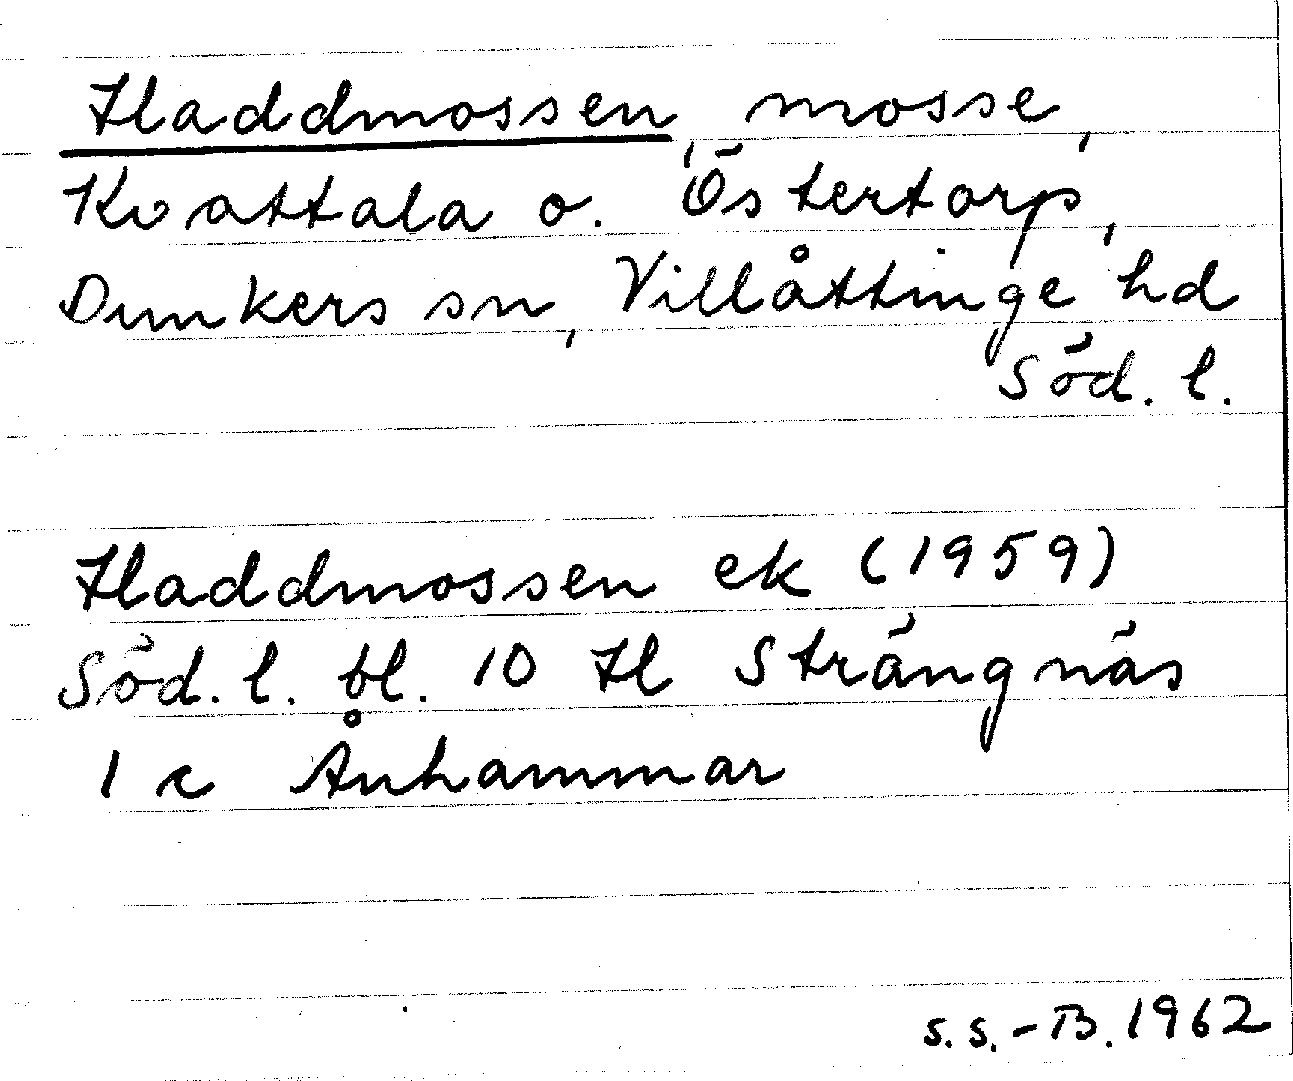 Haddmossen, mosse,
Kvattala o. Östertorp,
Dunkers sn, Villåttinge hd
Söd. l.
Haddmossen ek (1959)
Söd. l. bl. 10 H Strängnäs
1 c Ånhammar
S.S.-B. 1962